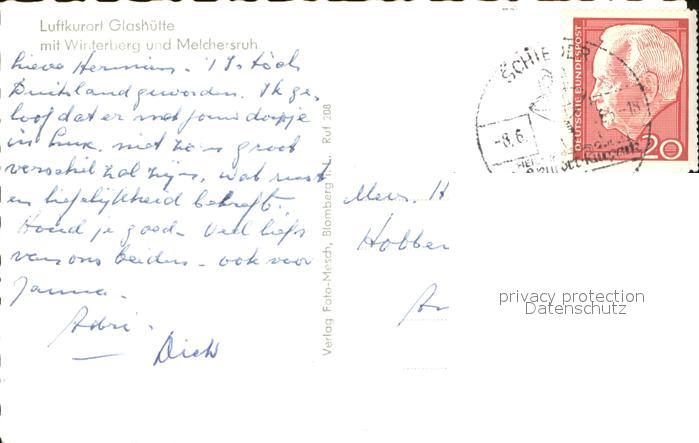 Luftkurort Glashütte
mit Winterberg und Melchersruh
Lieve Hermien. 't Is toch
Duitsland geworden. Ik ge-
loof dat er met jouw dorpje
in Lux. niet zo'n groot
verschil zal zijn, wat rust
en liefelijkheid betreft.
Houd je goed. Veel liefs
van ons beiden - ook voor
Janna.
Adri.
Dick
Verlag Foto-Mesch, Blomberg i. L. Ruf 208
SCHIEDER
-8.6.
-18
DEUTSCHE BUNDESPOST
20
Mevr. H
Hobbe
A
privacy protection
Datenschutz